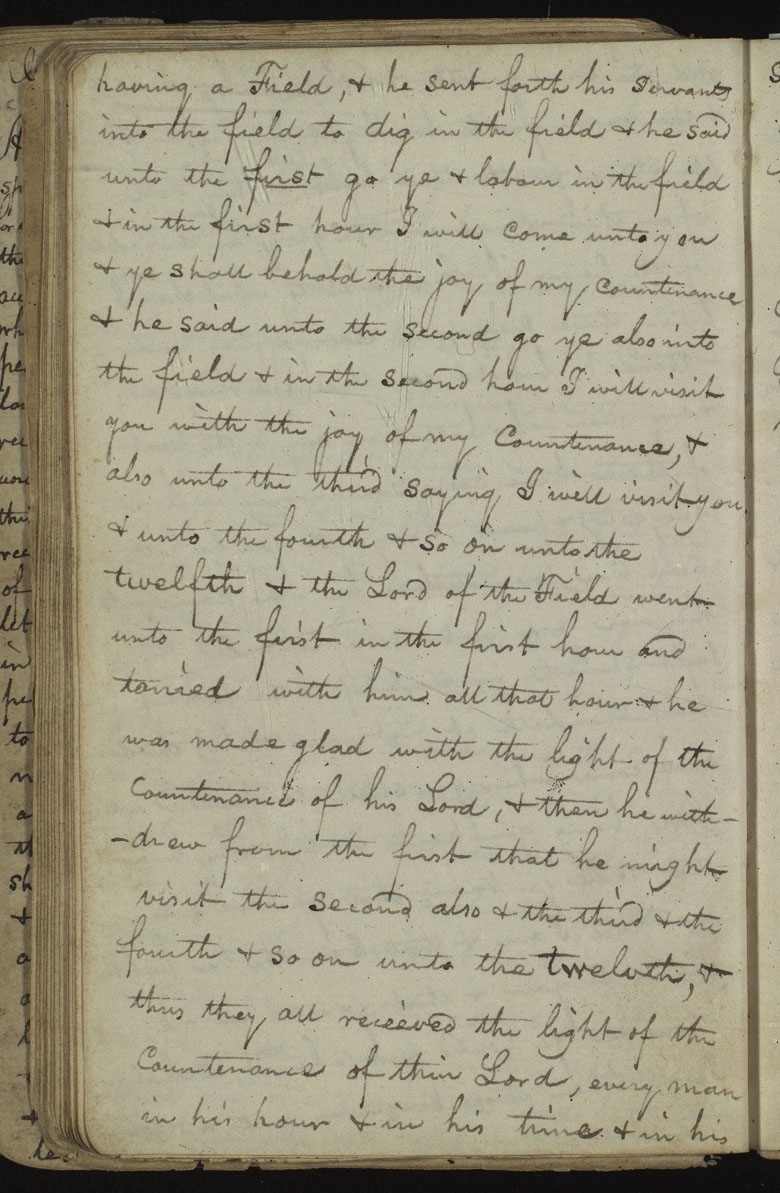 having a Field, & he sent forth his Servants
into the field to dig in the field & he said
unto the first go ye & labour in the field
& in the first hour I will come unto you
& ye shall behold the joy of my Countenance
& he said unto the second go ye also into
the field & in the second hour I will visit
you with the joy of my Countenance, &
also unto the third saying I will visit you
& unto the fourth & so on unto the
twelfth & the Lord of the Field went
unto the first in the first hour and
tarried with him all that hour & he
was made glad with the light of the
Countenance of his Lord, & then he with-
-drew from the first that he might
visit the second also & the third & the
fourth & so on unto the twelvth, &
thus they all received the light of the
Countenance of thier Lord, every man
in his hour & in his time & in his